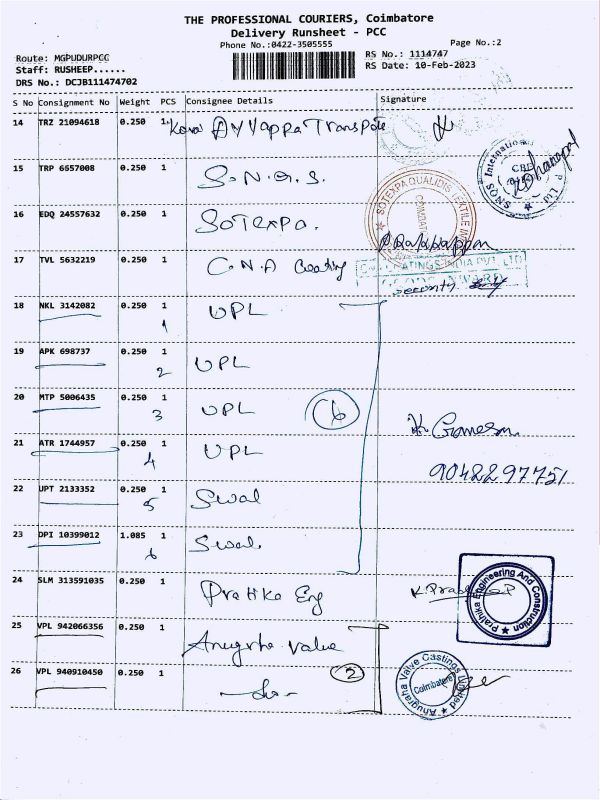 THE PROFESSIONAL COURIERS, Coimbatore
Delivery Runsheet - PCC
Phone No.:0422-3505555
Page No.:2
Route: MGPUDURPCC
Staff: RUSHEEP......
DRS No.: DCJB111474702
RS No.: 1114747
RS Date: 10-Feb-2023
S No Consignment No Weight PCS Consignee Details Signature
14 TRZ 21094618 0.250 1 Transpote
15 TRP 6657008 0.250 1 S.N.Q.S.
SNQS International P Ltd
CBE
16 EDQ 24557632 0.250 1 SOTEXPA.
SOTEXPA QUALIDIS TEXTILE
COIMBAT
17 TVL 5632219 0.250 1 C.N.A Coating
COATINGS INDIA PVT. LTD
Security
18 NKL 3142082 0.250 1 UPL
1
19 APK 698737 0.250 1 UPL
2
20 MTP 5006435 0.250 1 UPL 6
3
K. Ganesan
21 ATR 1744957 0.250 1 UPL
4
9048297751
22 UPT 2133352 0.250 1 Swal
5
23 DPI 10399012 1.085 1 Swal.
6
24 SLM 313591035 0.250 1 Pratika Eng
Prathika Engineering And Construction
25 VPL 942066356 0.250 1 Anugrha Valve
26 VPL 940910450 0.250 1 -do- 2
Anugraha Valve Castings Limited
Coimbatore